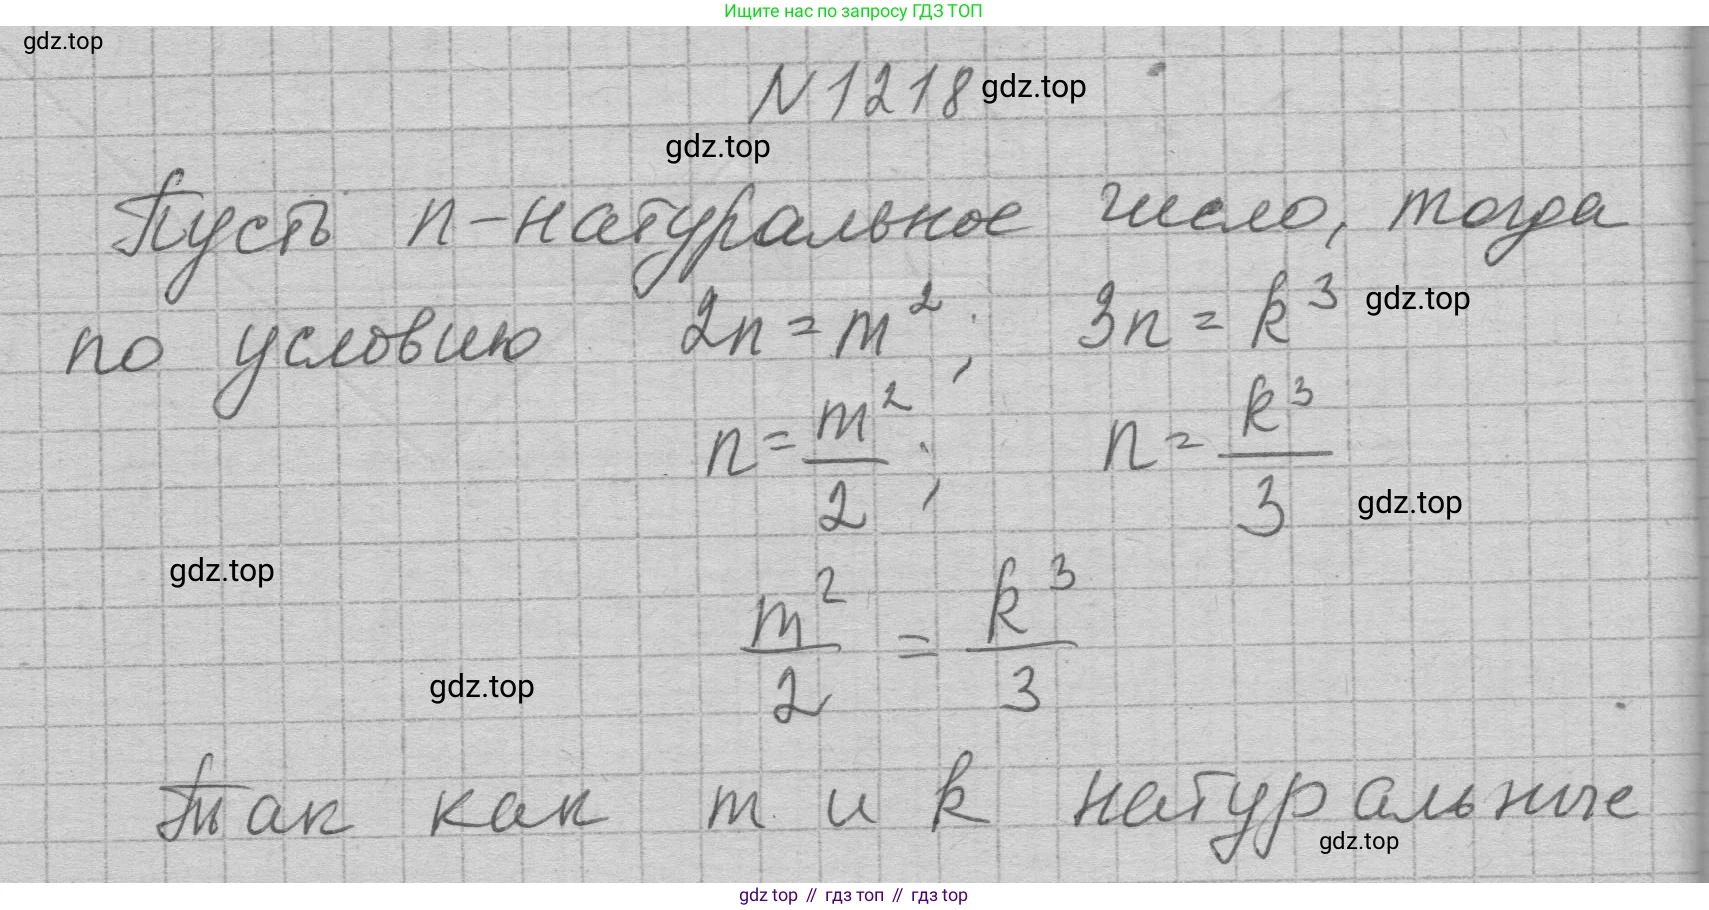 Ищите нас по запросу ГДЗ ТОП
gdz.top
N 1218 gdz.top
gdz.top
Пусть n - натуральное число, тогда
по условию 2n = m²; 3n = k³ gdz.top
n = m²/2; n = k³/3 gdz.top
gdz.top
m²/2 = k³/3
gdz.top
Так как m и k натуральные
gdz.top
gdz top // гдз топ // gdz.top